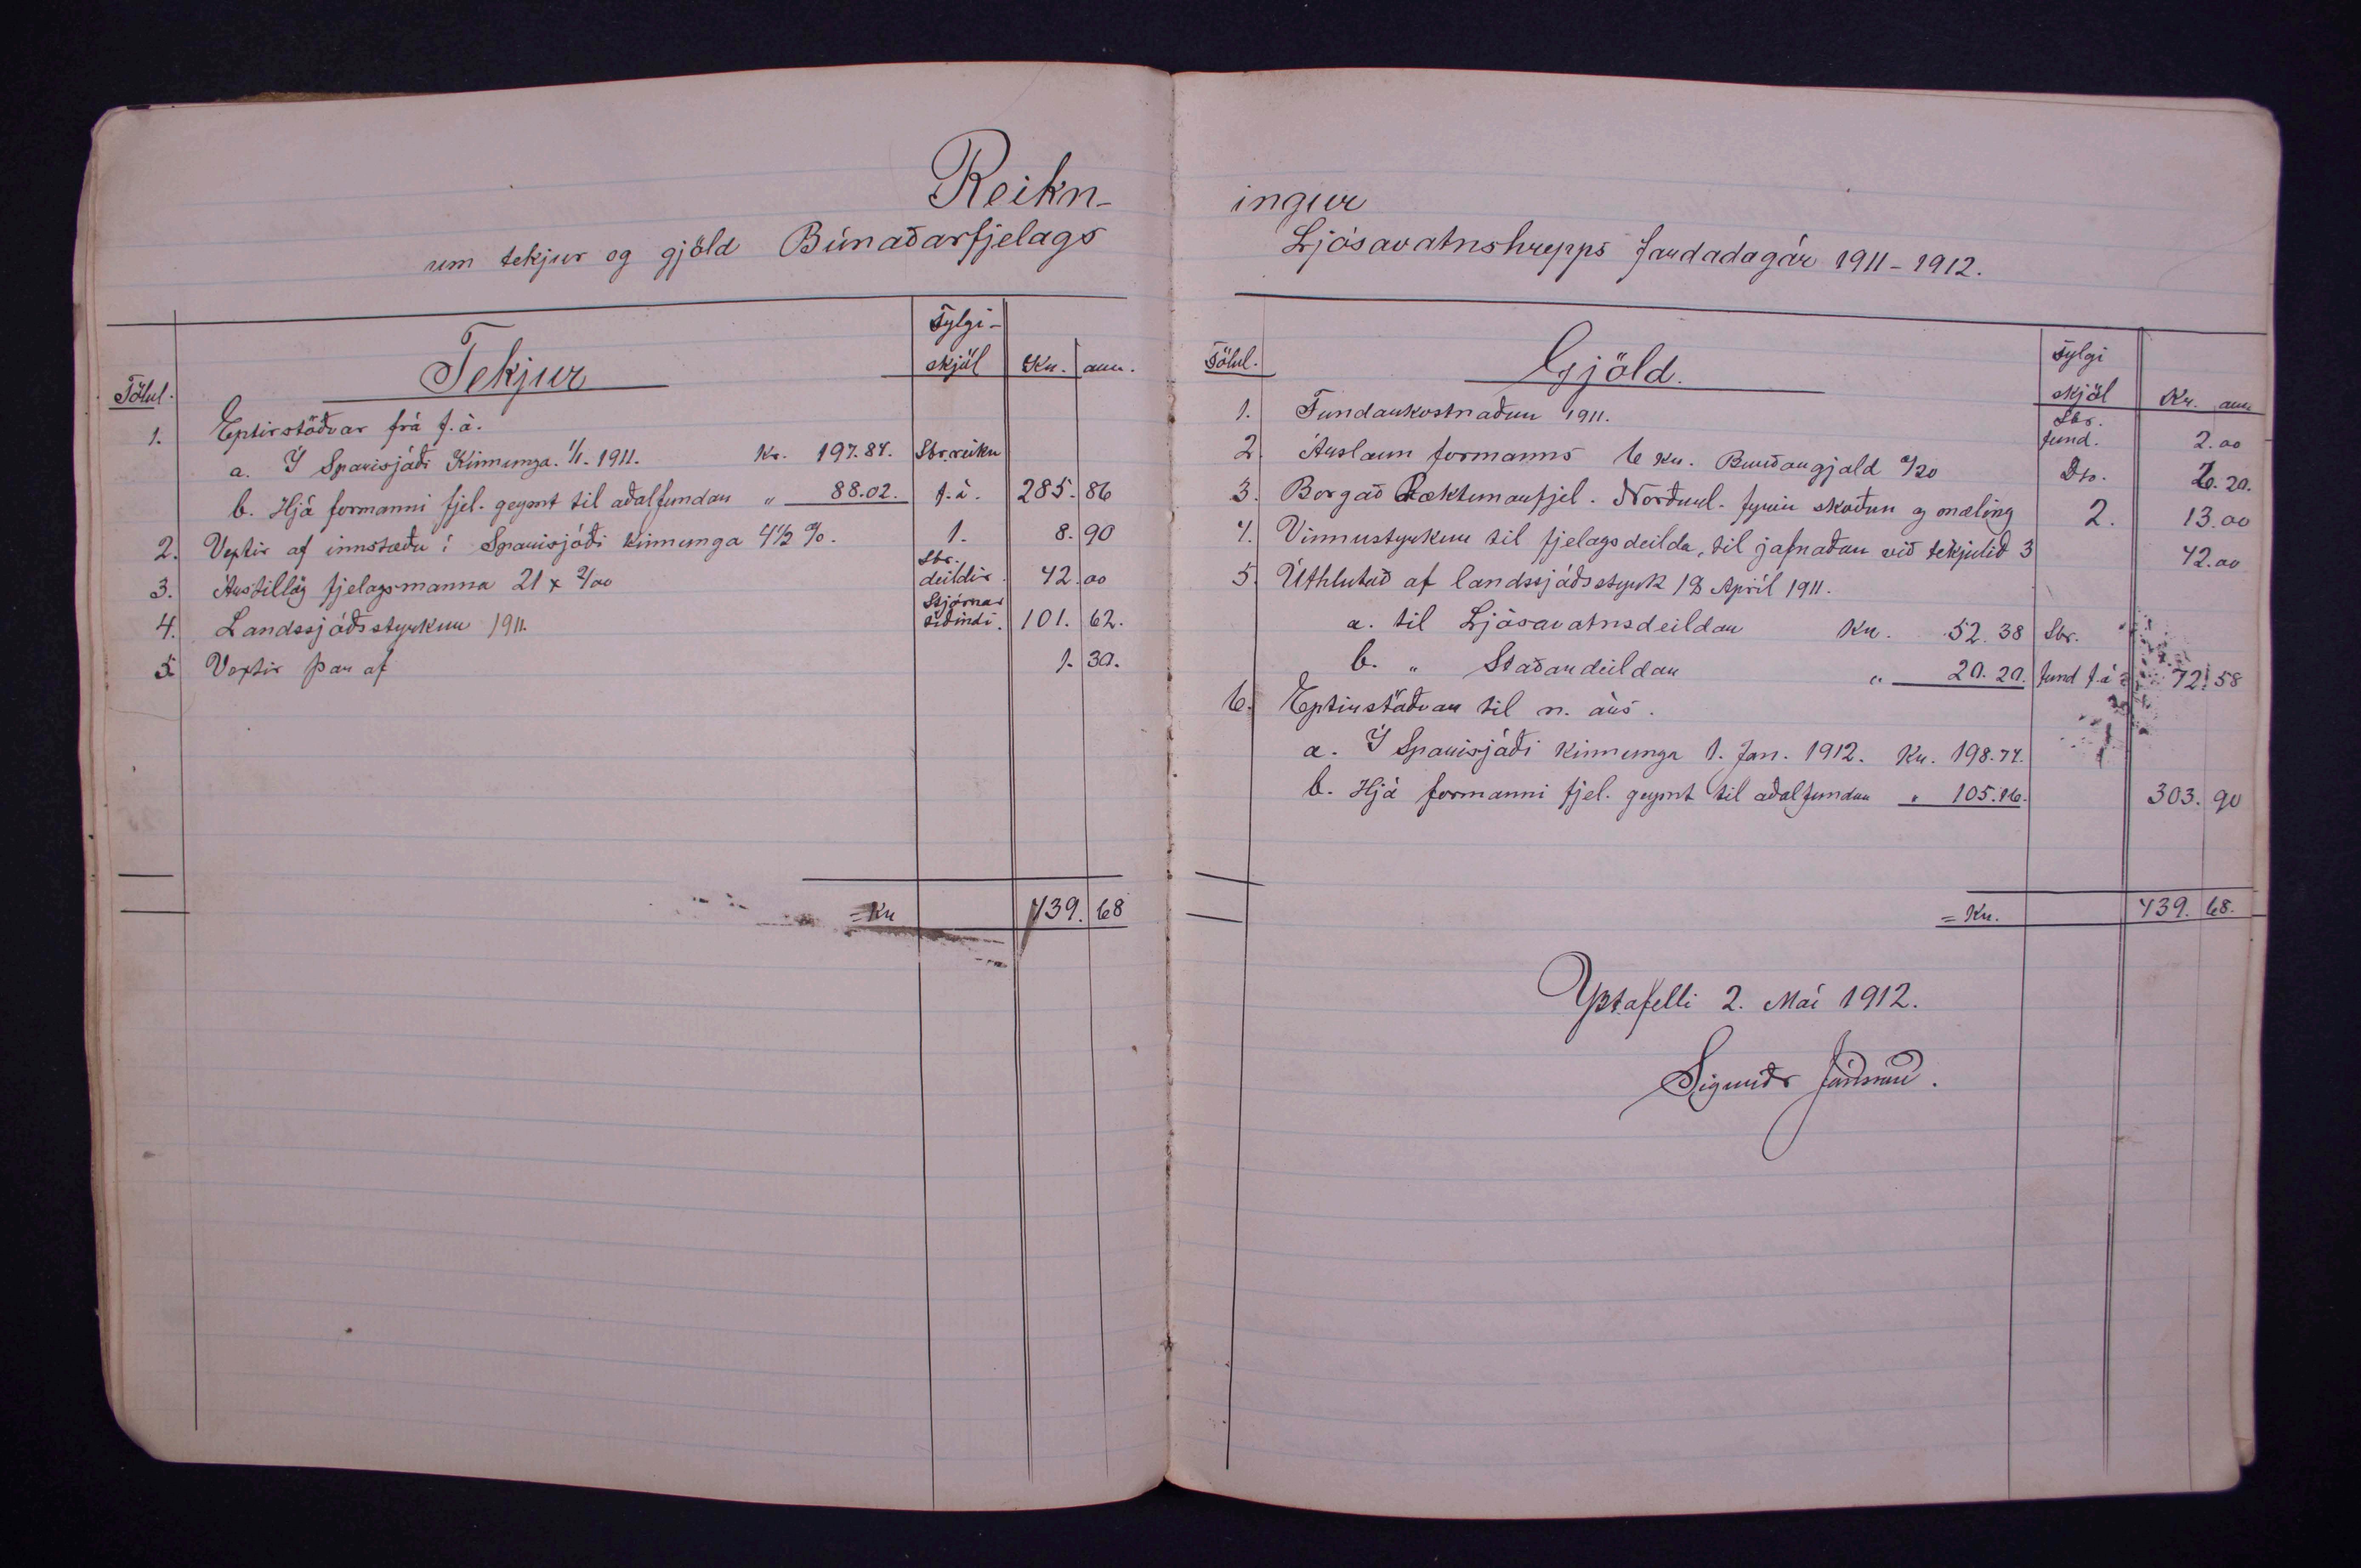 Reikn-
um tekjur og gjöld Búnaðarfjelags
Tölul.
Tekjur
Fylgi-
skjöl
Kr.
aur.
1. Eptirstöðvar frá f. á.
a. Í Sparisjóði Kinnunga. 1/1. 1911. Kr. 197.84. Sbr. reikn
b. Hjá formanni fjel. geymt til aðalfundar " 88.02. f. á. 285. 86
2. Vextir af innstæðu í Sparisjóði Kinnunga 4 1/2 %. 1. 8. 90
3. Árstillög fjelagsmanna 21 x 2/00 Sbr. deildir. 42. 00
4. Landssjóðsstyrkur 1911. Stjórnar tíðindi. 101. 62.
5. Vextir þar af 1. 30.
= Kr 439. 68
ingur
Ljósavatnshrepps fardagaár 1911-1912.
Tölul.
Gjöld.
Fylgi
skjöl
Kr. aur
1. Fundarkostnaður 1911. Sbr. fund. 2. 00
2. Árslaun formanns 6 kr. Burðargjald 0/20 Do. 6. 20.
3. Borgað Ræktunarfjel. Norðurl. fyrir skoðun og mæling 2. 13. 00
4. Vinnustyrkur til fjelagsdeilda, til jafnaðar við tekjulið 3 42. 00
5. Úthlutað af landssjóðsstyrk 18 Apríl 1911.
a. til Ljósavatnsdeildar Kr. 52. 38 Sbr.
b. " Staðardeildar " 20. 20. fund f. á 72. 58
6. Eptirstöðvar til n. árs.
a. Í Sparisjóði Kinnunga 1. Jan. 1912. Kr. 198.74.
b. Hjá formanni fjel. geymt til aðalfundar " 105.16. 303. 90
= Kr. 439. 68.
Yztafelli 2. Maí 1912.
Sigurðr Jónsson.